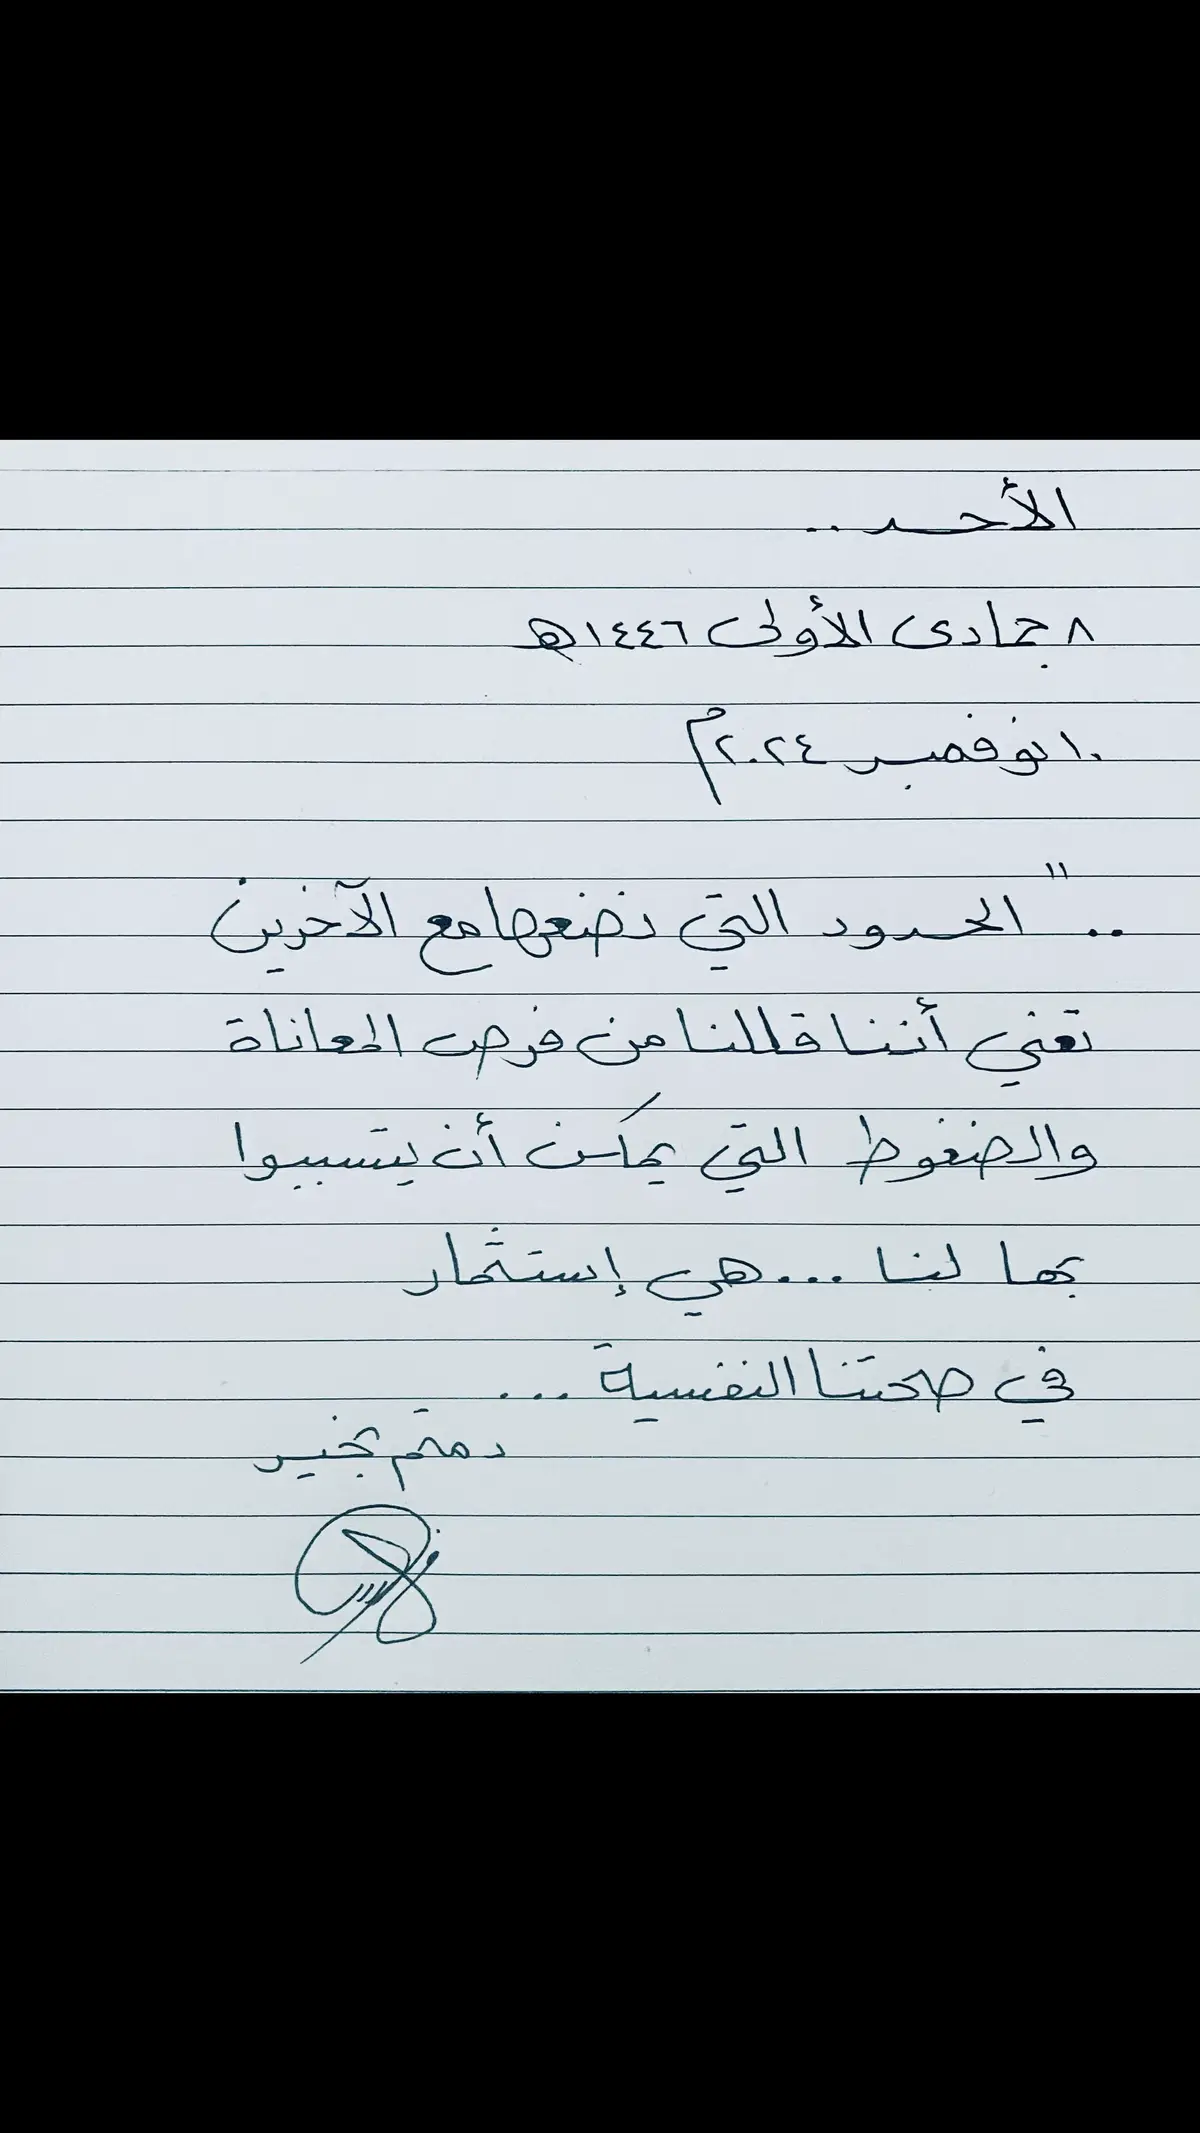 الأحد ..
٨ جمادى الأولى ١٤٤٦هـ
١٠ نوفمبر ٢٠٢٤م
.. " الحدود التي نضعها مع الآخرين
تعني أننا قللنا من فرص المعاناة
والضغوط التي يمكن أن يتسببوا
بها لنا ... هي إستثمار
في صحتنا النفسية ...
دمتم بخير